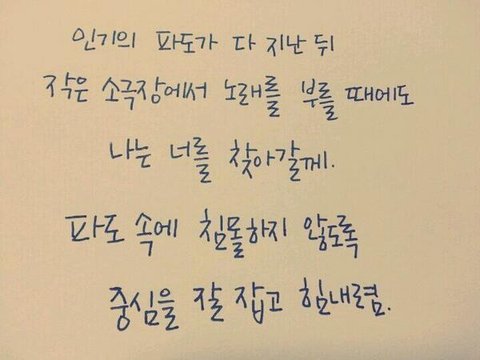 인기의 파도가 다 지난 뒤
작은 소극장에서 노래를 부를 때에도
나는 너를 찾아갈게.
파도 속에 침몰하지 않도록
중심을 잘 잡고 힘내렴.